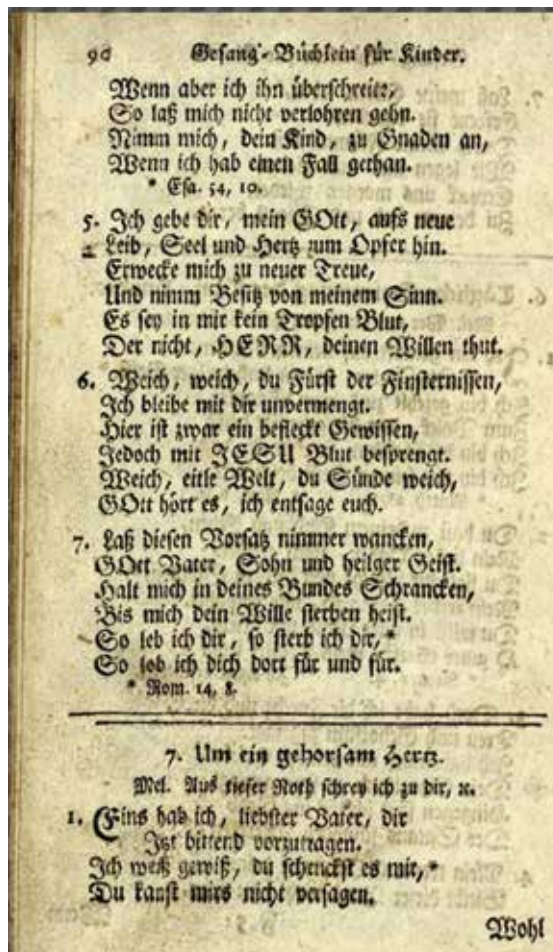 90 Gesang-Büchlein für Kinder.
Wenn aber ich ihn überschreite,
So laß mich nicht verlohren gehn.
Nimm mich, dein Kind, zu Gnaden an,
Wenn ich hab einen Fall gethan.
* Esa. 54, 10.
5. Ich gebe dir, mein GOtt, aufs neue
Leib, Seel und Hertz zum Opfer hin.
Erwecke mich zu neuer Treue,
Und nimm Besitz von meinem Sinn.
Es sey in mir kein Tropfen Blut,
Der nicht, HERR, deinen Willen thut.
6. Weich, weich, du Fürst der Finsternissen,
Ich bleibe mit dir unvermengt.
Hier ist zwar ein befleckt Gewissen,
Jedoch mit JESU Blut besprengt.
Weich, eitle Welt, du Sünde weich,
GOtt hört es, ich entsage euch.
7. Laß diesen Vorsatz nimmer wancken,
GOtt Vater, Sohn und heilger Geist.
Halt mich in deines Bundes Schrancken,
Bis mich dein Wille sterben heist.
So leb ich dir, so sterb ich dir, *
So lob ich dich dort für und für.
* Rom. 14, 8.
7. Um ein gehorsam Hertz.
Mel. Aus tiefer Noth schrey ich zu dir, ꝛc.
1. Eins hab ich, liebster Vater, dir
Itzt bittend vorzutragen.
Ich weiß gewiß, du schenckst es mir, *
Du kanst mirs nicht versagen.
Wohl